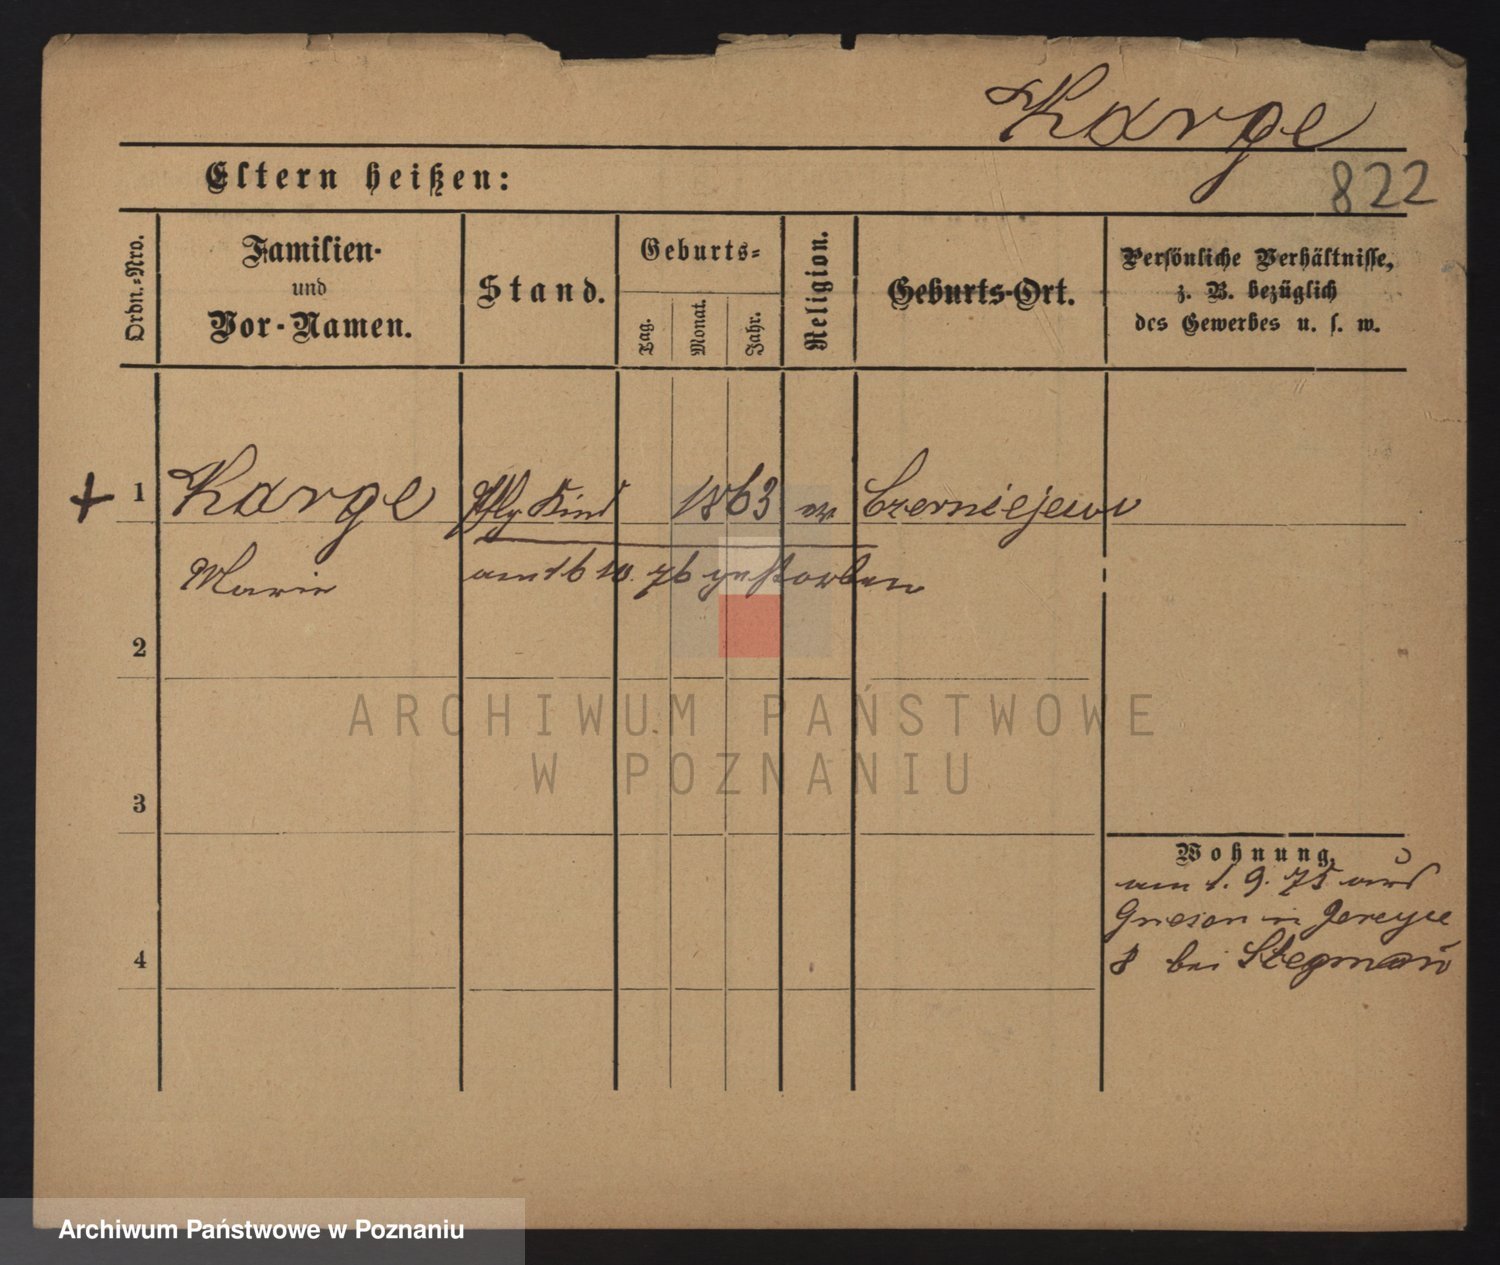 Karge
822
Eltern heißen:
Ordn.-Nro.
Familien-
und
Vor-Namen.
Stand.
Geburts-
Tag.
Monat.
Jahr.
Religion.
Geburts-Ort.
Persönliche Verhältnisse,
z. B. bezüglich
des Gewerbes u. s. w.
1 Karge Pflg Kind 1863 ev Czerniejewo
Marie am 16 10. 76 gestorben
2
3
4
Wohnung.
am 1. 9. 75 aus
Gnesen in Jereyce
8 bei Stegman̄
ARCHIWUM PAŃSTWOWE
W POZNANIU
Archiwum Państwowe w Poznaniu